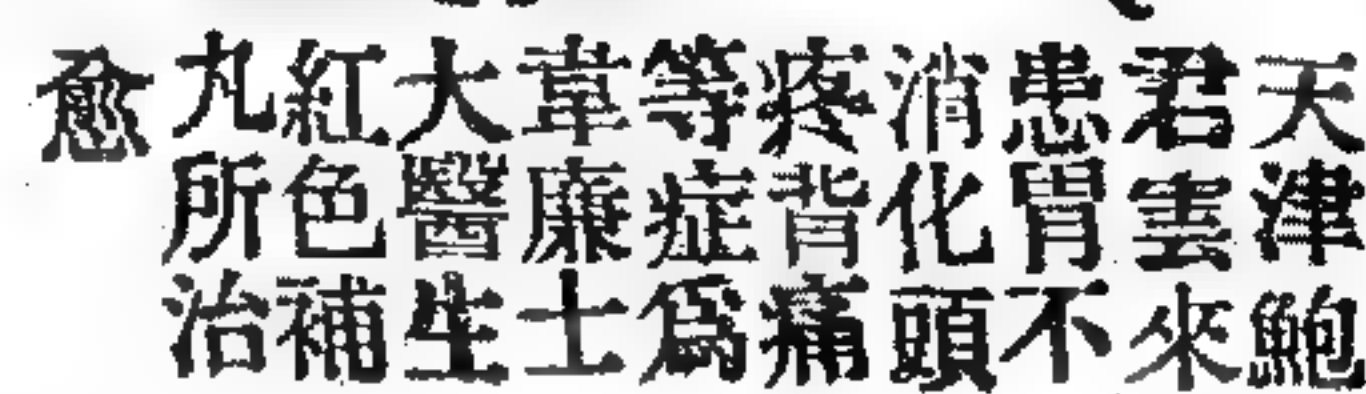 天津鮑
君雲來
患胃不
消化頭
疼背痛
等症爲
韋廉士
大醫生
紅色補
丸所治
愈